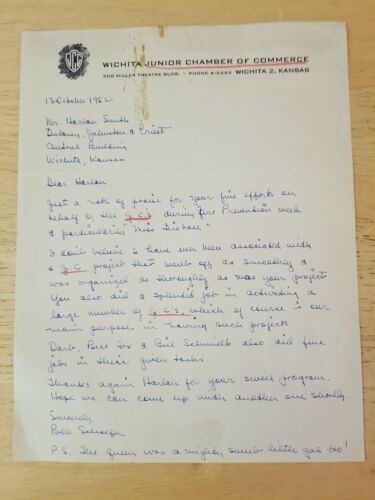 WICHITA JUNIOR CHAMBER OF COMMERCE
505 MILLER THEATRE BLDG. • PHONE 4-5353 WICHITA 2, KANSAS
13 October 1952
Mr. Harlan Smith
Dulaney, Johnston & Priest
Central Building
Wichita, Kansas
Dear Harlan
Just a note of praise for your fine efforts on
behalf of the J.C.'s during Fire Prevention week
& particularly "Miss Fireball"
I don't believe I have ever been associated with
a J.C. project that went off as smoothly &
was organized as thoroughly as was your project.
You also did a splendid job in activating a
large number of J.C.'s, which of course is our
main purpose in having such projects.
Darb, Bill Fox & Bill Schmidt also did fine
jobs in their given tasks.
Thanks again Harlan for your swell program.
Hope we can come up with another one shortly.
Sincerely,
Bob
P.S. The queen was a mighty sweet little gal too!